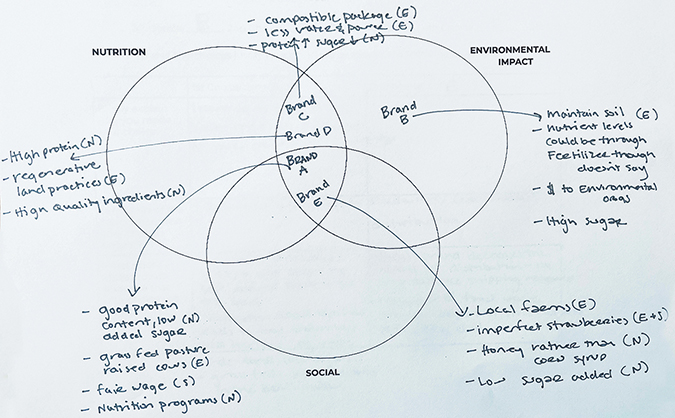 - compostible package (E)
- less water & power (E)
- protein ↑ sugar ↓ (N)
NUTRITION
ENVIRONMENTAL
IMPACT
Brand
C
Brand D
BRAND
A
Brand
E
Brand
B
- High protein (N)
- regenerative
land practices (E)
- High Quality ingredients (N)
- Maintain soil (E)
- nutrient levels
could be through
Fertilizer though
doesn't say
- $ to Environmental
orgs
- High sugar
- good protein
content, low (N)
added sugar
- grass fed pasture
raised cows (E)
- fair wage (S)
- Nutrition programs (N)
SOCIAL
- Local farms (E)
- imperfect strawberries (E+S)
- Honey rather than (N)
corn syrup
- Low sugar added (N)